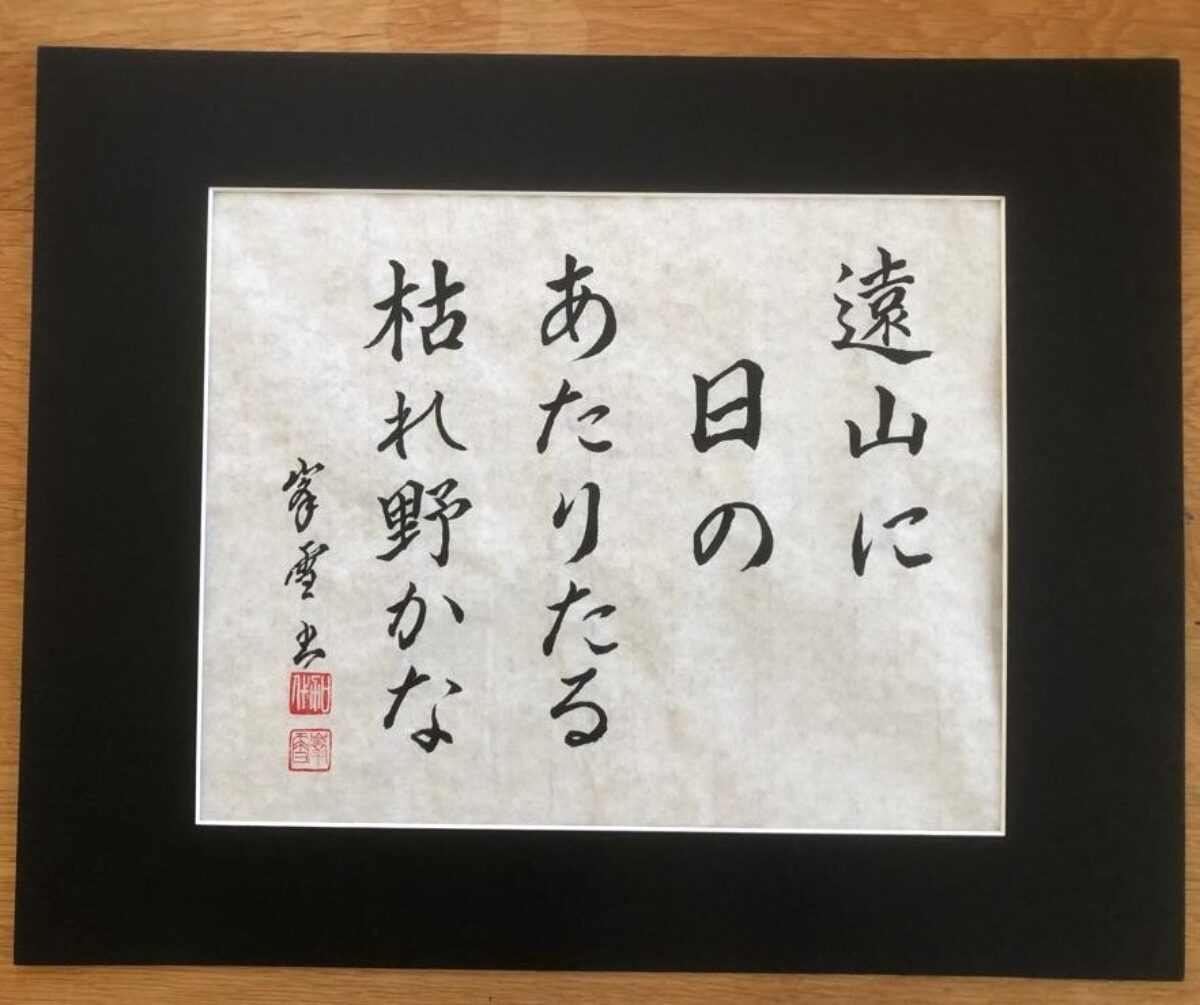 遠山に
日の
あたりたる
枯れ野かな
峯雪書